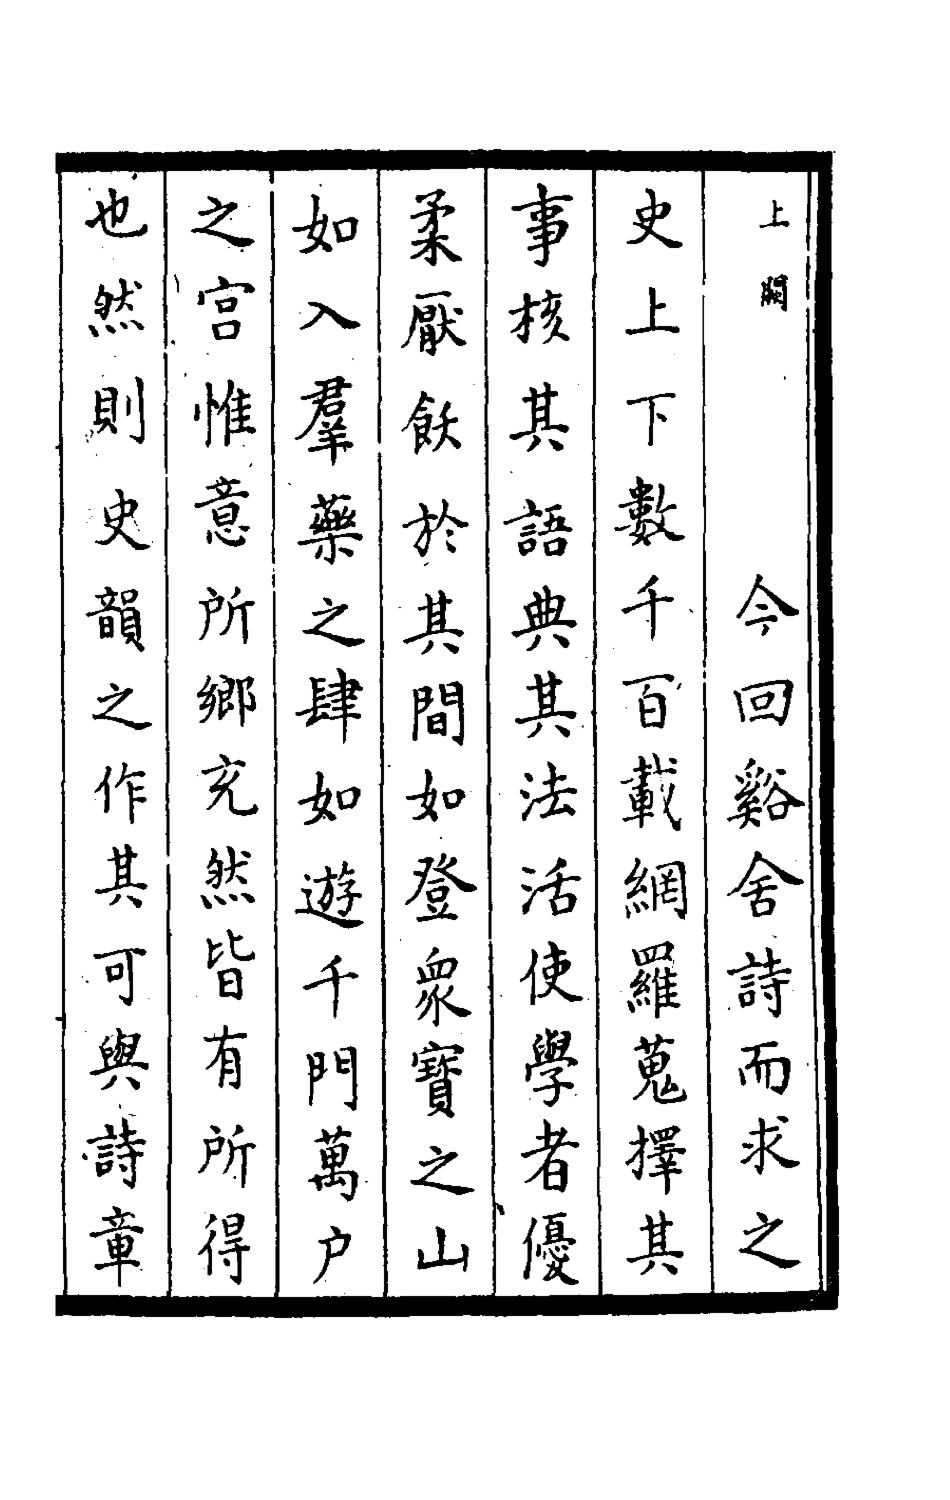 上闕 今回谿舍詩而求之
史上下數千百載網羅蒐擇其
事核其語典其法活使學者優
柔厭飫於其間如登衆寶之山
如入羣藥之肆如遊千門萬户
之宫惟意所鄉充然皆有所得
也然則史韻之作其可與詩章